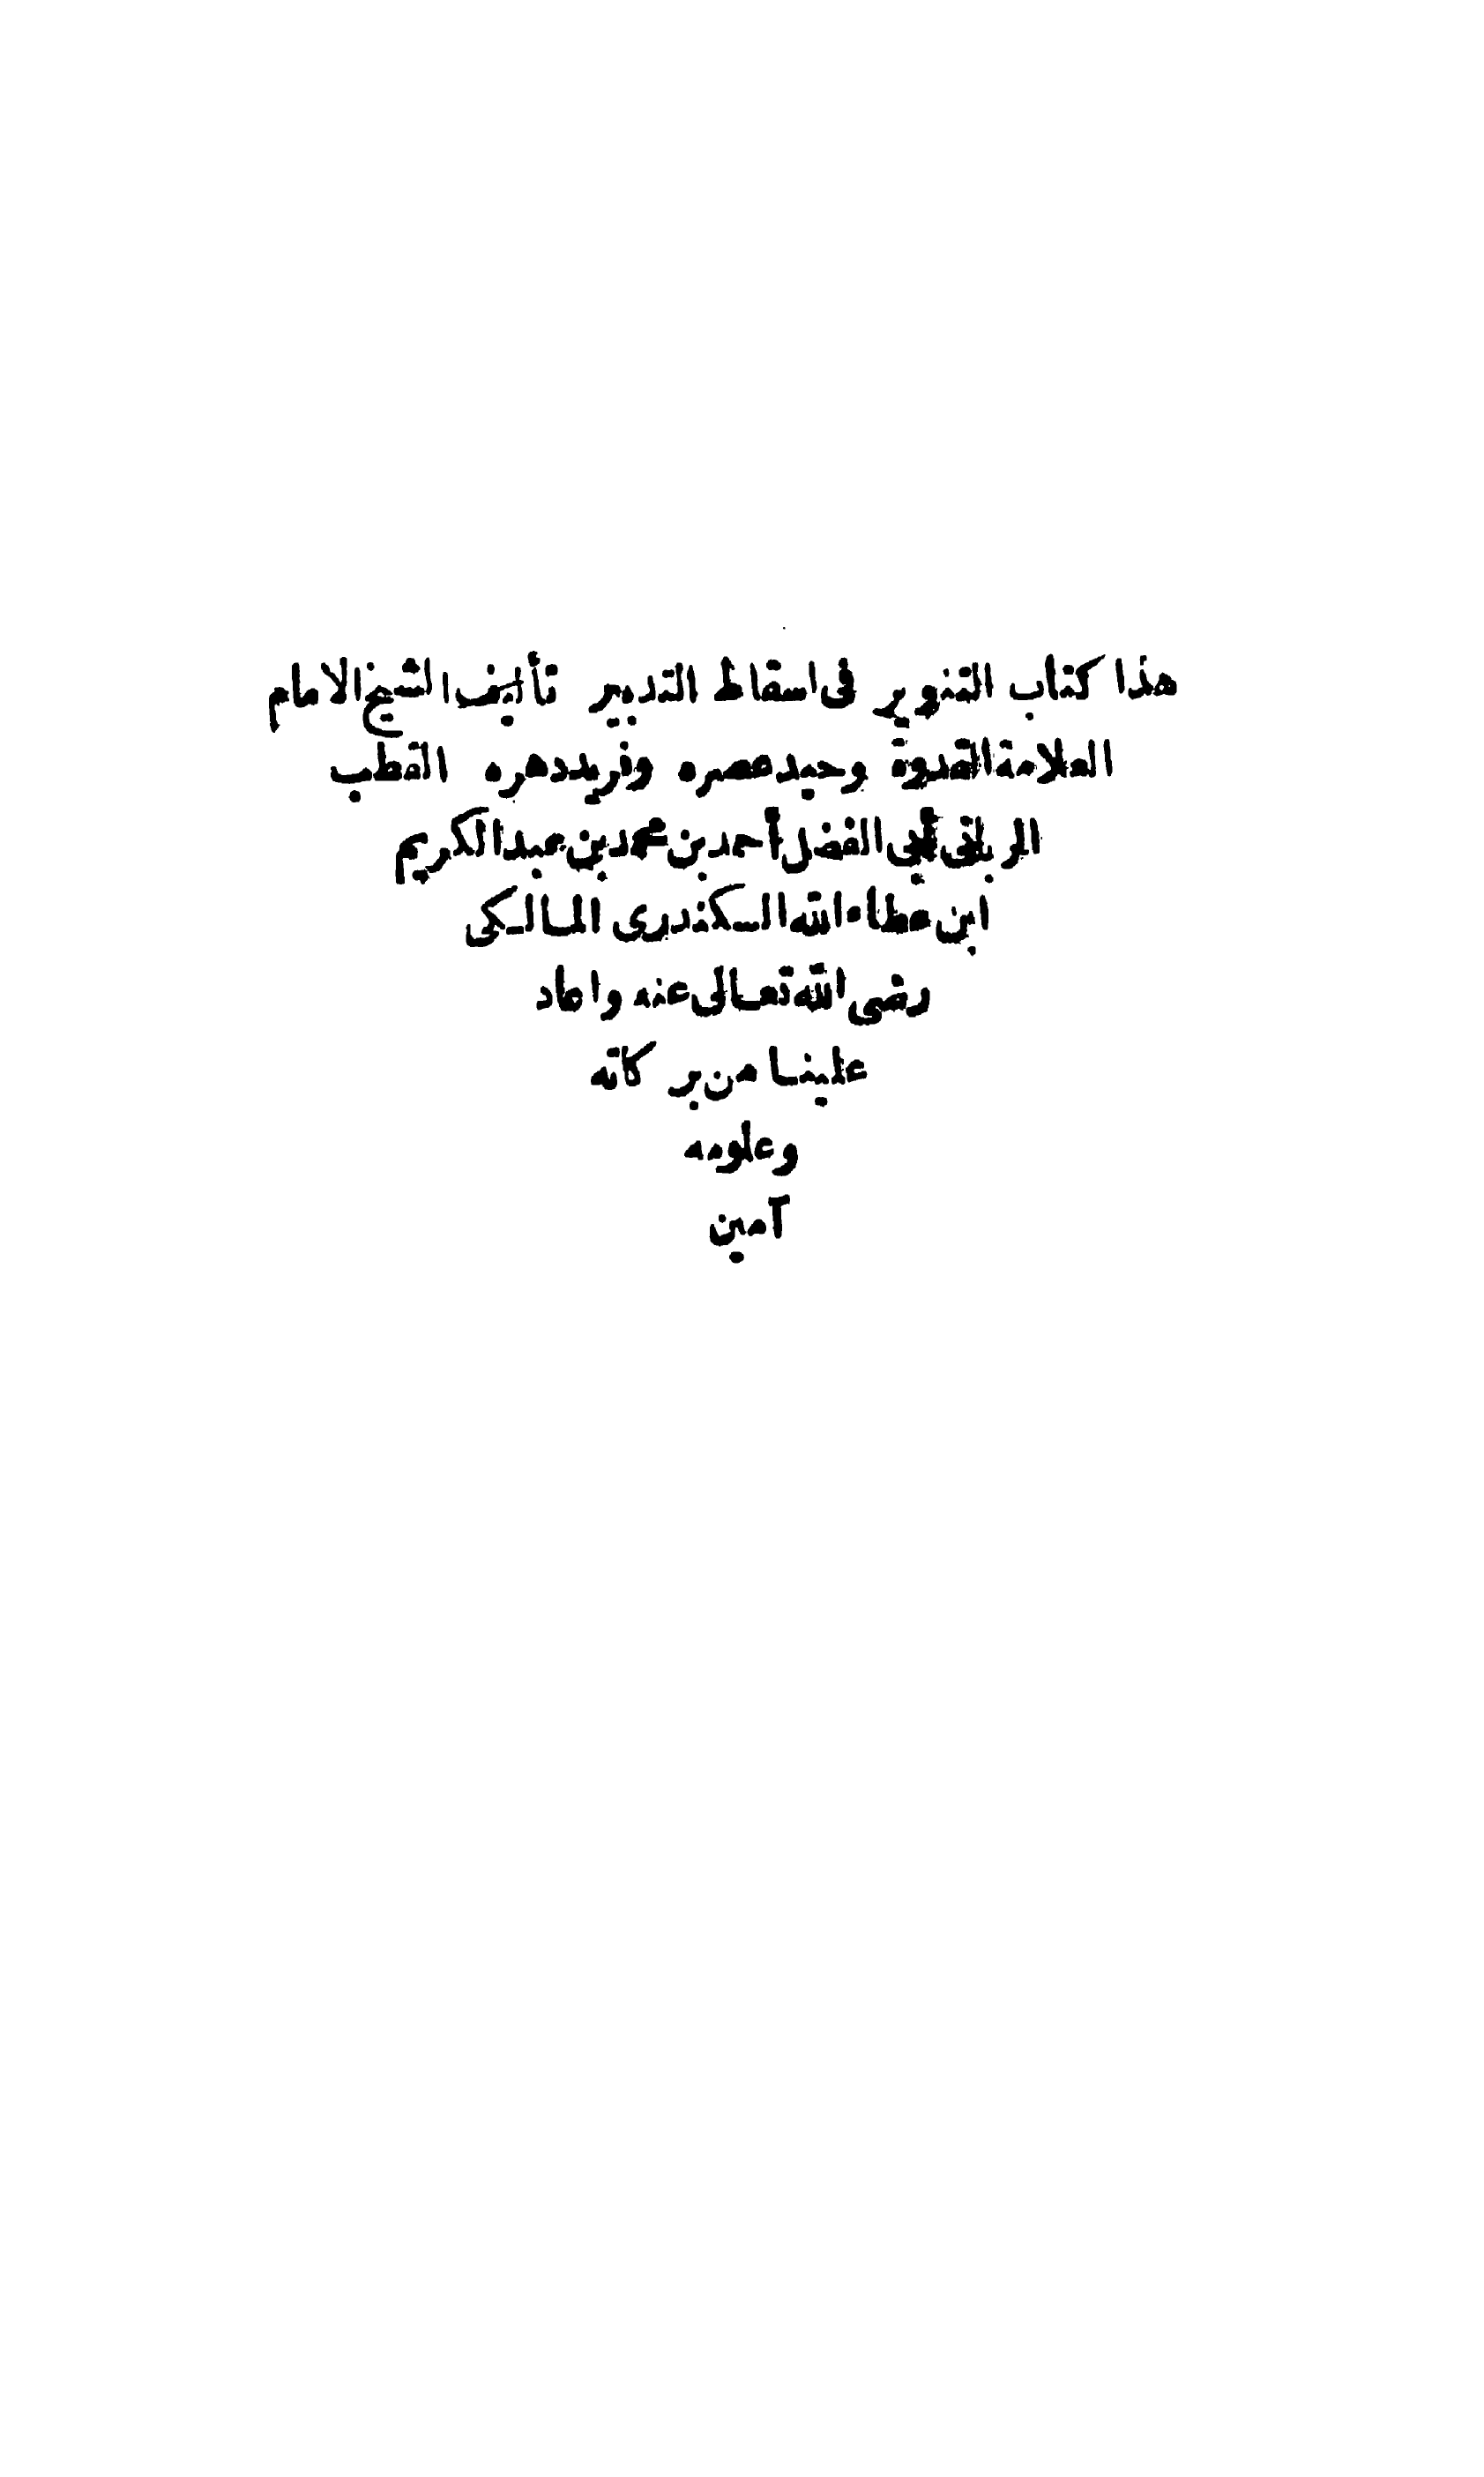 هذا كتاب التنوير فى اسقاط التدبير تأليف الشيخ الامام
العلامة القدوة وحيد عصره وفريد دهره القطب
الربانى أبى الفضل أحمد بن محمد بن عبد الكريم
ابن عطاء الله السكندرى المالكى
رضى الله تعالى عنه واعاد
علينا من بركاته
وعلومه
آمين